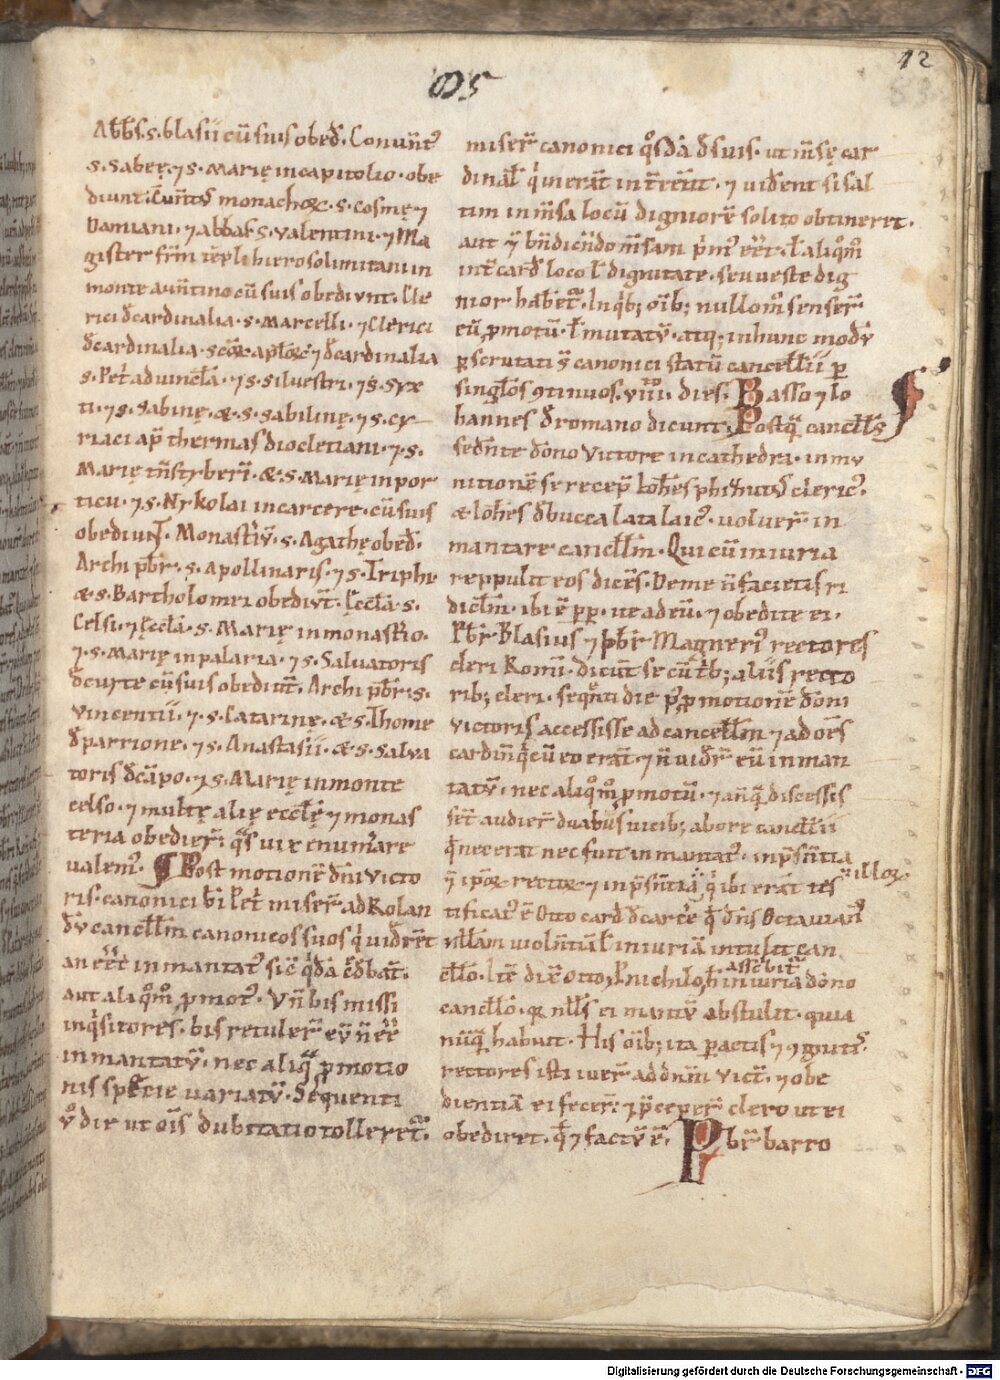 12
Abb̄s .s. blasii cū suis obed̄. Conuēntꝰ
.s. Sabeę. ⁊ .s. Marię in capitolio. obe
diunt. monachoꝝ. s. cosmę ⁊
Damiani. ⁊ abbas .s. valentini. ⁊ Ma
gister frm̄ tēpli hierosolimitani in
monte auentino cū suis obediunt. Cle
rici đ cardinalia .s. Marcelli. ⁊ clerici
đ cardinalia s̄coꝝ aplōꝝ ⁊ đ cardinalia
.s. Pet͛ ad uincl̄a. ⁊ .s. siluestri. ⁊ .s. Syx
ti. ⁊ .s. Sabinę. & .s. Gabilinę. ⁊ .s. cy
riaci ap̄ thermas diocletiani. ⁊ .s.
Marię tn̄styberī. & .s. Marię in por
ticu. ⁊ .s. Nykolai in carcere. cū suis
obediunt̄. Monast͛iū .s. Agathę obed̄.
Archi pb̄r .s. Apollinaris. ⁊ .s. Triphi
& .s. Bartholomei obediūt̄. Ęccl̄a .s.
Celsi. ⁊ ęccl̄a .s. Marię in monast͛io.
⁊ .s. Marię in palaria. ⁊ .s. Saluatoris
đ curte cū suis obediūt̄. Archi pb̄r .s.
vincentii. ⁊ .s. Catarinę. & .s. Thome
đ parrione. ⁊ .s. Anastasii. & .s. Salua
toris đ cāpo. ⁊ .s. Marię in monte
celso. ⁊ multę alię eccl̄ę ⁊ monas
teria obedier̄. q̄s uix enum̄are
valem̄ꝰ. ¶ Post motionē dn̄i victo
ris. canonici b̄i Pet͛ miser̄ ad Rolan
dū cancell̄m canonicos suos q̇ uider̄ēt
an eēt̄ inmantatꝰ sic̄ q̇dā c̄đbat̄.
aut aliqͦm̊ p̱motꝰ. Vn̄ bis missi
inq̇sitores. bis retuler̄ eū n̄ eē
inmantatū. nec aliq̄ p̱motio
nis spētie uariatū. Sequenti
ů die ut om̄s dubitatio tolleret̄.
miser̄ canonici qͦsdā đ suis. ut m̄sę car
dinal̄ q̇ inerāt intrēnt̄. ⁊ uiđent si sal
tim in m̄sa locū digniorē solito obtineret.
aut bn̄dicn̄do m̄sam p̄mꝰ eēt̄. ł aliqͦm̊
int͛ card̄ loco ł dignitate. seu ueste dig
nior habet͛. In q̇bꝫ om̄ibꝫ nullom̊ senser̄
eū p̱motū. ł mutatū. atqꝫ in hunc modū
p̱scrutati s̄t canonici statū cancell̄ii p̱
singl̄os ꝯtinuos .viii. dies. Basso ⁊ Io
hannes đ romano dicunt. Postq̄ cancell̄s
seđnte dōno victore in cathedra. in mu
nitionē se recep̄
& Ioh̄es đ bucca lata laicꝰ. uoluer̄ in
mantare cancell̄m. Qui cū iniuria
reppulit eos dicēs. De me n̄ facietis ri
dicl̄m. ibi ē pp̄. ite ad eū. ⁊ obedite ei.
Pb̄r Blasius ⁊ pb̄r Magnerꝰ rectores
cleri Romī. dicūt se cū t͛bꝫ aliis recto
ribꝫ cleri. seq̄nti die p̄ p̱motionē dōni
victoris accessisse ad cancell̄m ⁊ ad om̄s
cardin̄ q̇ cū eo erāt ⁊ n̄ uider̄ eū inman
tatū. nec aliqͦm̊ p̱motū. ⁊ an̄q̄ discessis
sēt̄ audier̄ duabus uicibꝫ ab ore cancell̄ii
q̇ nec erat nec fuit inmantatꝰ. in p̄sentia
ipoꝝ rectoꝝ ⁊ in p̄sentia illoꝝ q̇ ibi erāt tes
tificatꝰ ē Otto card̄ đ carc͛e q̄ dn̄s Octauianꝰ
null̄am uiolentiā ł iniuriā intulit can
cell̄o. Itē dix̄ Otto, nichil asc̄bit͛ in iuriā dōno
cancell̄o. qꝫ null̄s ei mantū abstulit. quia
nūq̄ habuit. His om̄ibꝫ ita p̱actis ⁊ ꝯgnitꝭ
rectores isti iuer̄ ad dn̄m vict͛. ⁊ obe
dientiā ei fecer̄. ⁊ p̄ceper̄ clero ut ei
obediret. q̄ ⁊ factū ē. Pb̄r barro
Digitalisierung gefördert durch die Deutsche Forschungsgemeinschaft - DFG